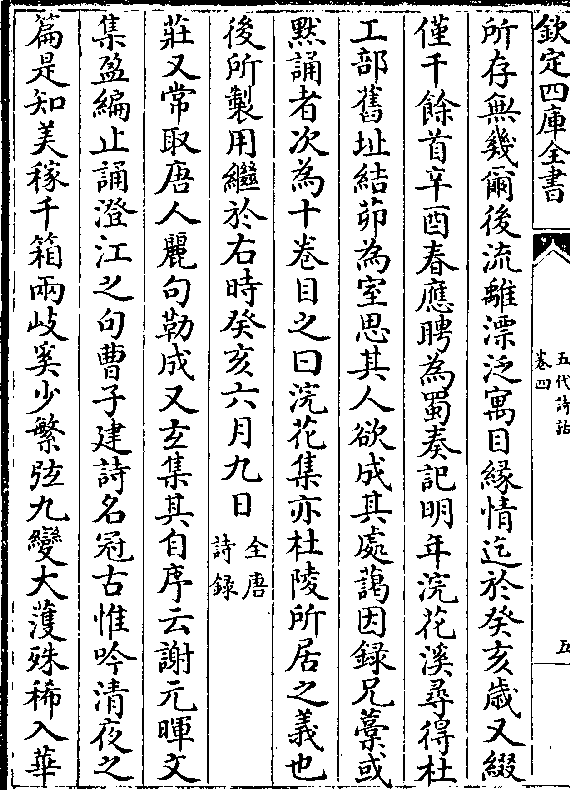 欽定四庫全書
五代詩話
卷四
五
所存無幾爾後流離漂泛寓目緣情迄於癸亥歲又綴
僅千餘首辛酉春應聘為蜀奏記明年浣花溪尋得杜
工部舊址結茆為室思其人欲成其處藹因錄兄藳或
黙誦者次為十卷目之曰浣花集亦杜陵所居之義也
後所製用繼於右時癸亥六月九日全唐
詩録
莊又常取唐人麗句勒成又玄集其自序云謝元暉文
集盈編止誦澄江之句曹子建詩名冠古惟吟清夜之
篇是知美稼千箱兩岐奚少繁弦九變大䕶殊稀入華